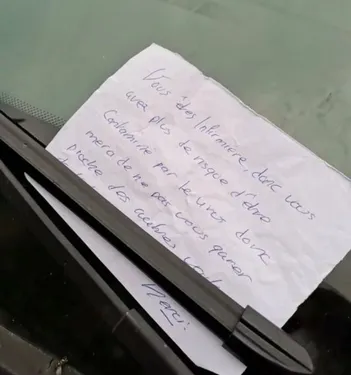 Vous êtes Infirmière, donc vous
avez plus de risque d'être
Contaminé par le virus donc
merci de ne pas vous garer
proche des autres
Merci